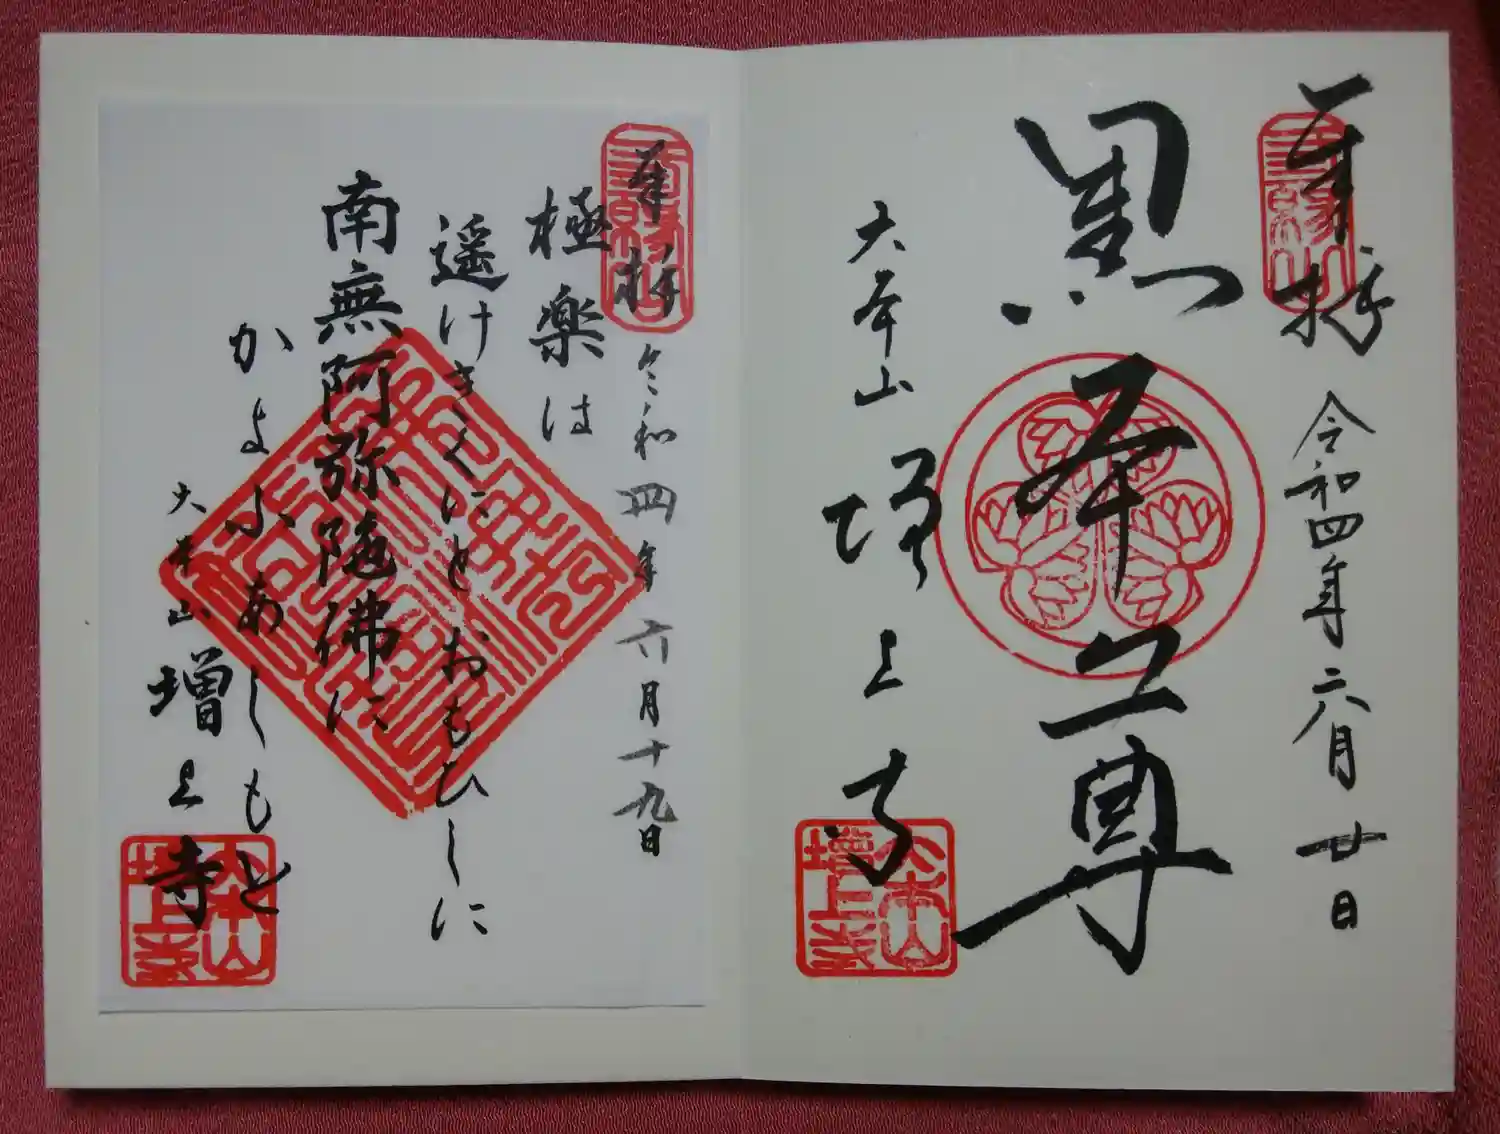 奉拝 令和四年六月廿日
三縁山
黒本尊
大本山 増上寺
大本山増上寺
奉拝 令和四年六月十九日
三縁山
極楽は
遥けきくにとおもひしに
南無阿弥陀佛に
かよふあしもと
大本山 増上寺
大本山増上寺